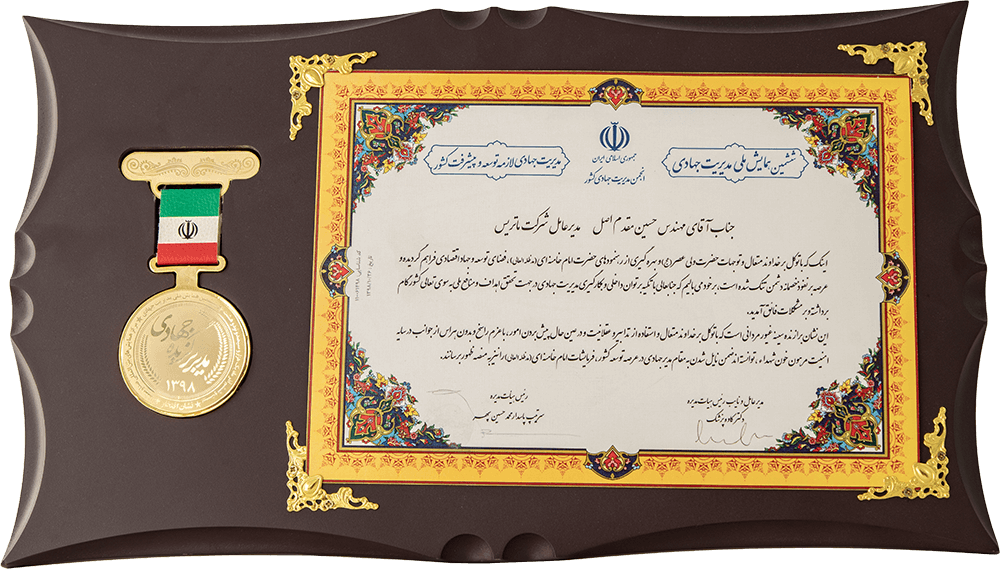 ششمین همایش ملی مدیریت جهادی
جمهوری اسلامی ایران
انجمن مدیریت جهادی کشور
مدیریت جهادی لازمه توسعه و پیشرفت کشور
جناب آقای مهندس حسین مقدم اصل مدیرعامل شرکت ماتریس
اینک که با توکل بر خداوند متعال و توجهات حضرت ولی عصر(عج) و بهره گیری از رهنمودهای حضرت امام خامنه ای (مدظله العالی)، فضای توسعه و جهاد اقتصادی فراهم گردیده و
عرصه بر نفوذ خصمانه دشمن تنگ شده است، بر خود می بالیم که جنابعالی با تکیه بر توان داخلی و بکارگیری مدیریت جهادی در جهت تحقق اهداف و منافع ملی به سوی تعالی کشور گام
برداشته و بر مشکلات فائق آمدید.
این نشان برازنده سینه غیور مردانی است که با توکل بر خداوند متعال و استفاده از تدابیر و عقلانیت و در عین حال پیش بردن امور، با عزم راسخ و بدون هراس از جوانب در سایه
امنیت مرهون خون شهداء، توانسته اند ضمن نایل شدن به مقام مدیر جهادی در عرصه توسعه کشور، فرمایشات امام خامنه ای (مدظله العالی) را نیز به منصه ظهور برسانند.
مدیرعامل و نایب رئیس هیات مدیره
دکتر کاوه پزشک
رئیس هیات مدیره
سرتیپ پاسدار محمد حسین سپهر
مدیر جهادی
۱۳۹۸